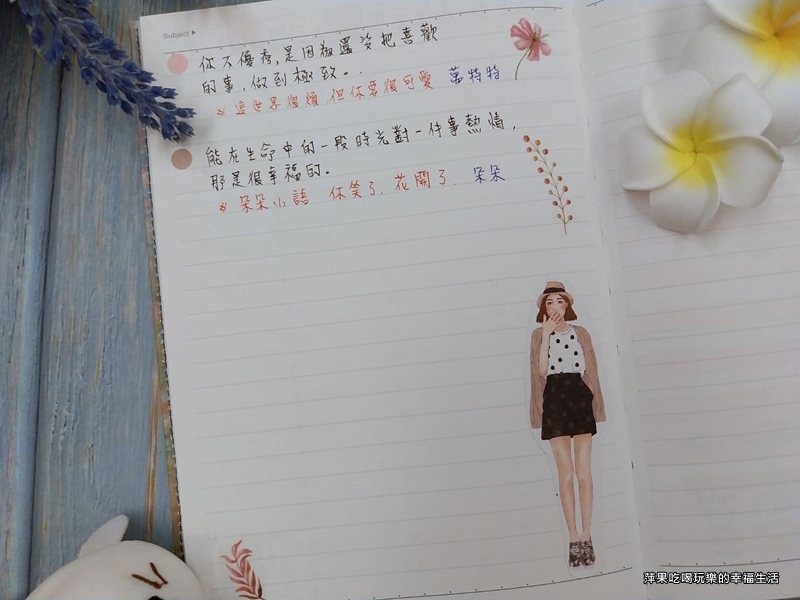 Subject ▸
你不優秀,是因為還沒把喜歡
的事,做到極致。
※ 這世界很煩,但你要很可愛 萬特特
能在生命中的一段時光對一件事熱情,
那是很幸福的。
※ 朵朵小語 你笑了,花開了. 朵朵
萍果吃喝玩樂的幸福生活